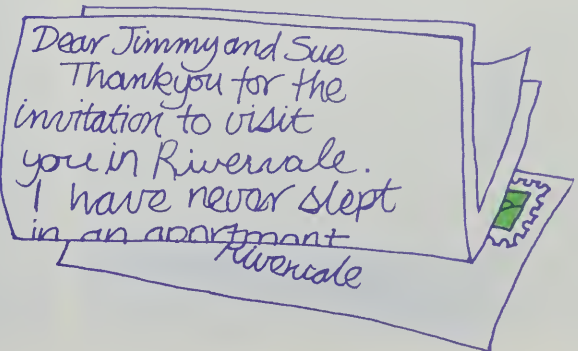 Dear Jimmy and Sue
Thankyou for the
invitation to visit
you in Rivervale.
I have never slept
in an apartment
Rivervale